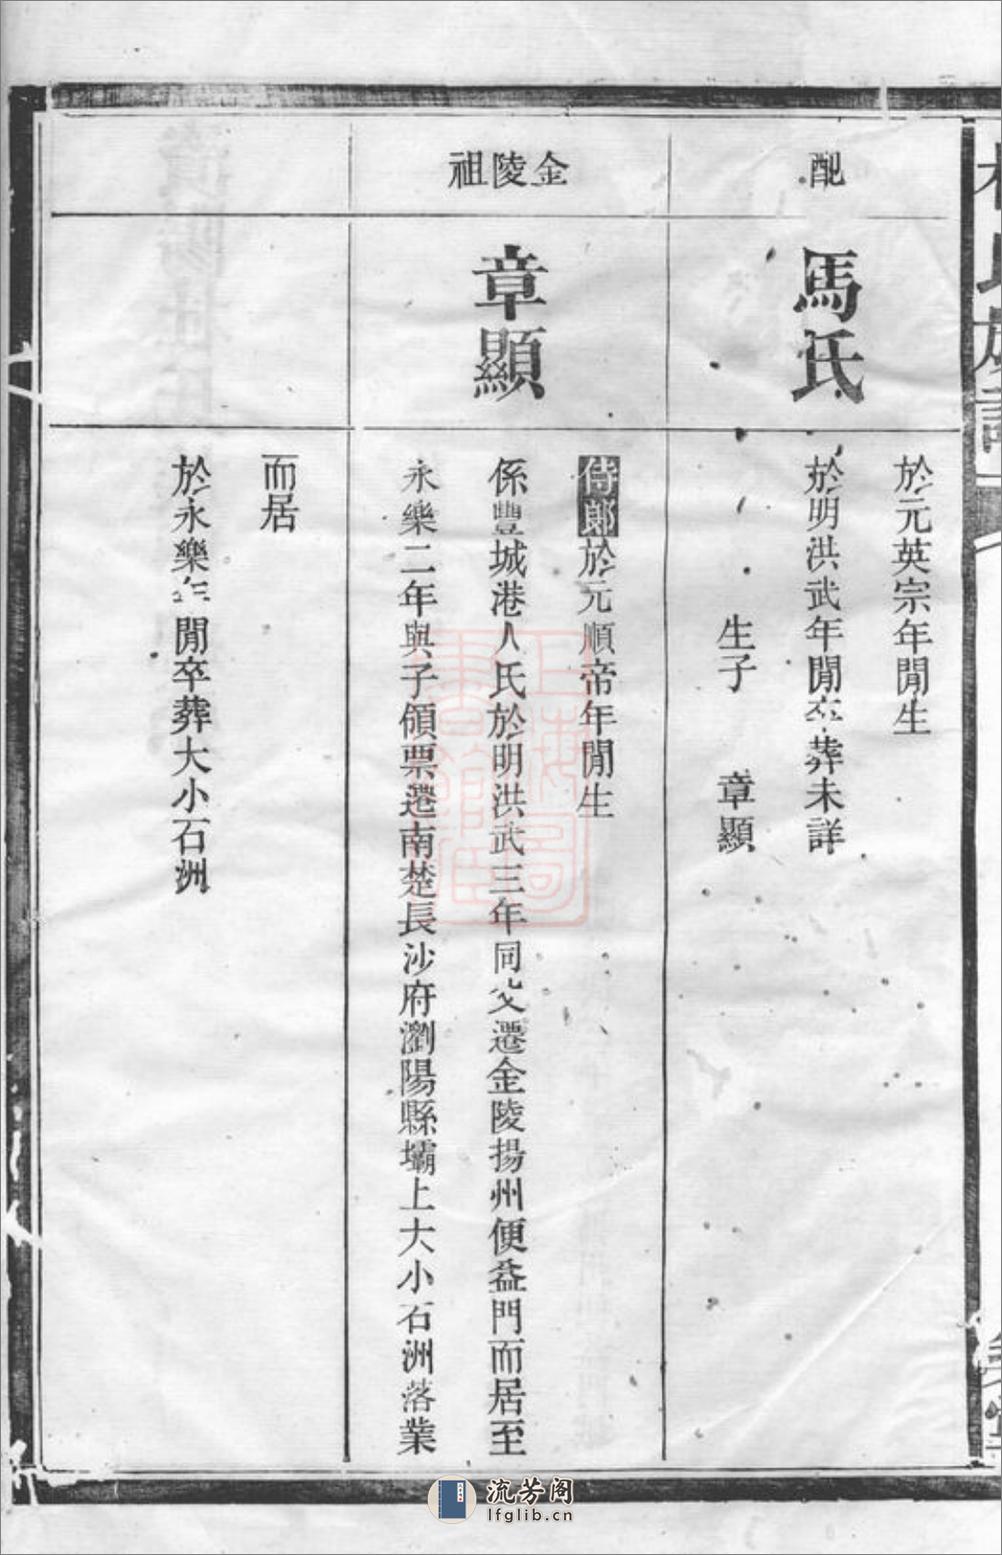 配
馬氏
於元英宗年閒生
於明洪武年閒卒葬未詳
生子 章顯
金陵祖
章顯
侍郎於元順帝年閒生
係豐城港人氏於明洪武三年同父遷金陵揚州便益門而居至
永樂二年與子領票遷南楚長沙府瀏陽縣壩上大小石洲落業
而居
於永樂年閒卒葬大小石洲
流芳阁
lfglib.cn